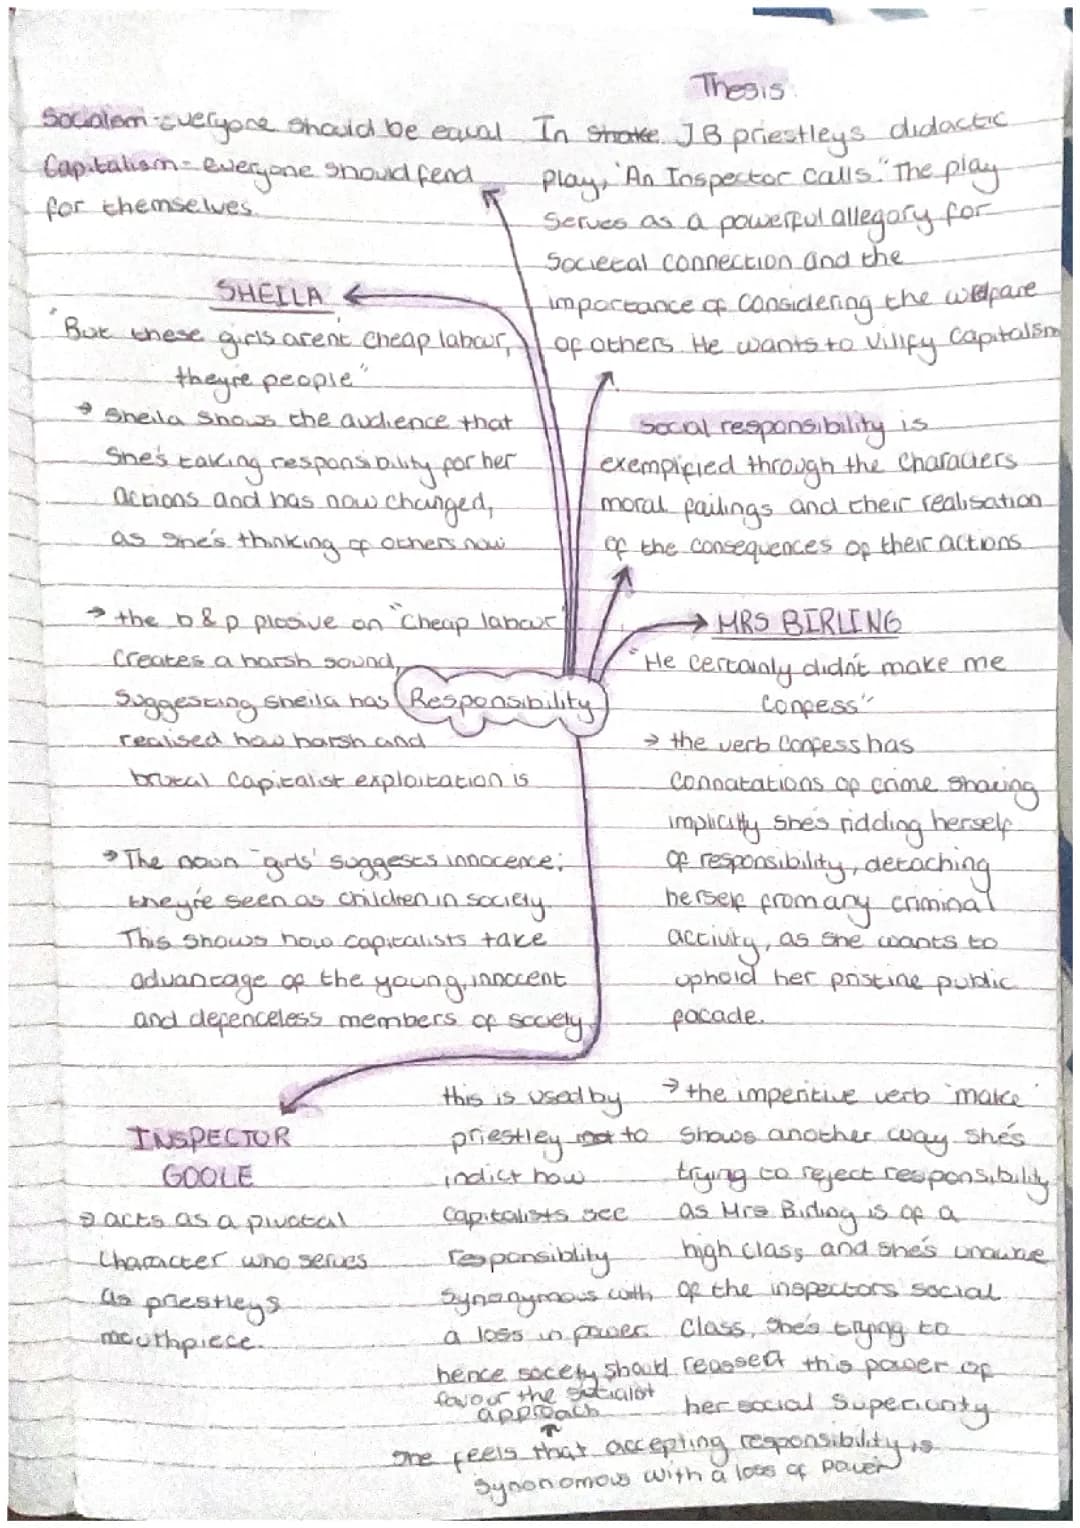 Thesis.
Socialism - Everyone should be equal
Capitalism = everyone should fend
for themselves.
In JB priestleys didactic
play, 'An Inspector Calls." The play
serves as a powerful allegory for
societal connection and the
importance of considering the welfare
of others. He wants to vilify capitalism
SHEILA
"But these girls arent cheap labour,
they're people"
→ Sheila shows the audience that
she's taking responsibility for her
actions and has now changed,
as she's thinking of others now
→ the b & p plosive on "cheap labour"
creates a harsh sound,
suggesting sheila has
realised how harsh and
brutal capitalist exploitation is
→ The noun "girls' suggests innocence;
they're seen as children in society.
This shows how capitalists take
advantage of the young, innocent
and defenceless members of society
Social responsibility is
exemplified through the characters
moral failings and their realisation
of the consequences of their actions
Responsibility
MRS BIRLING
"He certainly didn't make me
confess"
→ the verb confess has
connatations of crime showing
implicitly she's ridding herself
of responsibility, detaching
herself from any criminal
activity, as she wants to
uphold her pristine public
facade.
→ the imperitive verb 'make'
shows another way she's
trying to reject responsibility
as Mrs Birling is of a
high class, and she's unaware
of the inspectors social
class, she's trying to
reassert this power of
her social superiority
INSPECTOR
GOOLE
→ acts as a pivotal
character who serves
as priestleys
mouthpiece.
this is used by
priestley to
indict how
capitalists see
responsiblity
synonymous with
a loss in power.
hence society should
favour the socialist
approach
↑
she feels that accepting responsibility is
synonomous with a loss of power